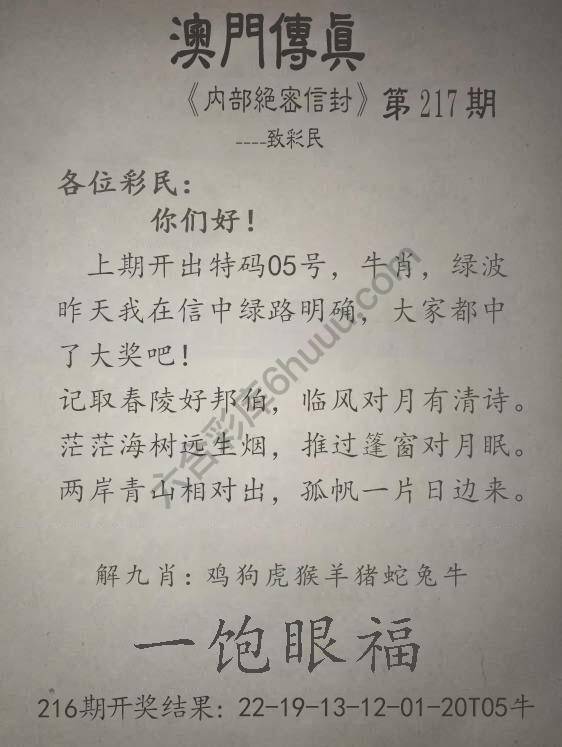 澳門傳眞
《內部絕密信封》第217期
----致彩民
各位彩民：
你们好！
上期开出特码05号，牛肖，绿波
昨天我在信中绿路明确，大家都中
了大奖吧！
记取春陵好邦伯，临风对月有清诗。
茫茫海树远生烟，推过篷窗对月眠。
两岸青山相对出，孤帆一片日边来。
解九肖：鸡狗虎猴羊猪蛇兔牛
一饱眼福
216期开奖结果：22-19-13-12-01-20T05牛
六合彩库6huuu.com